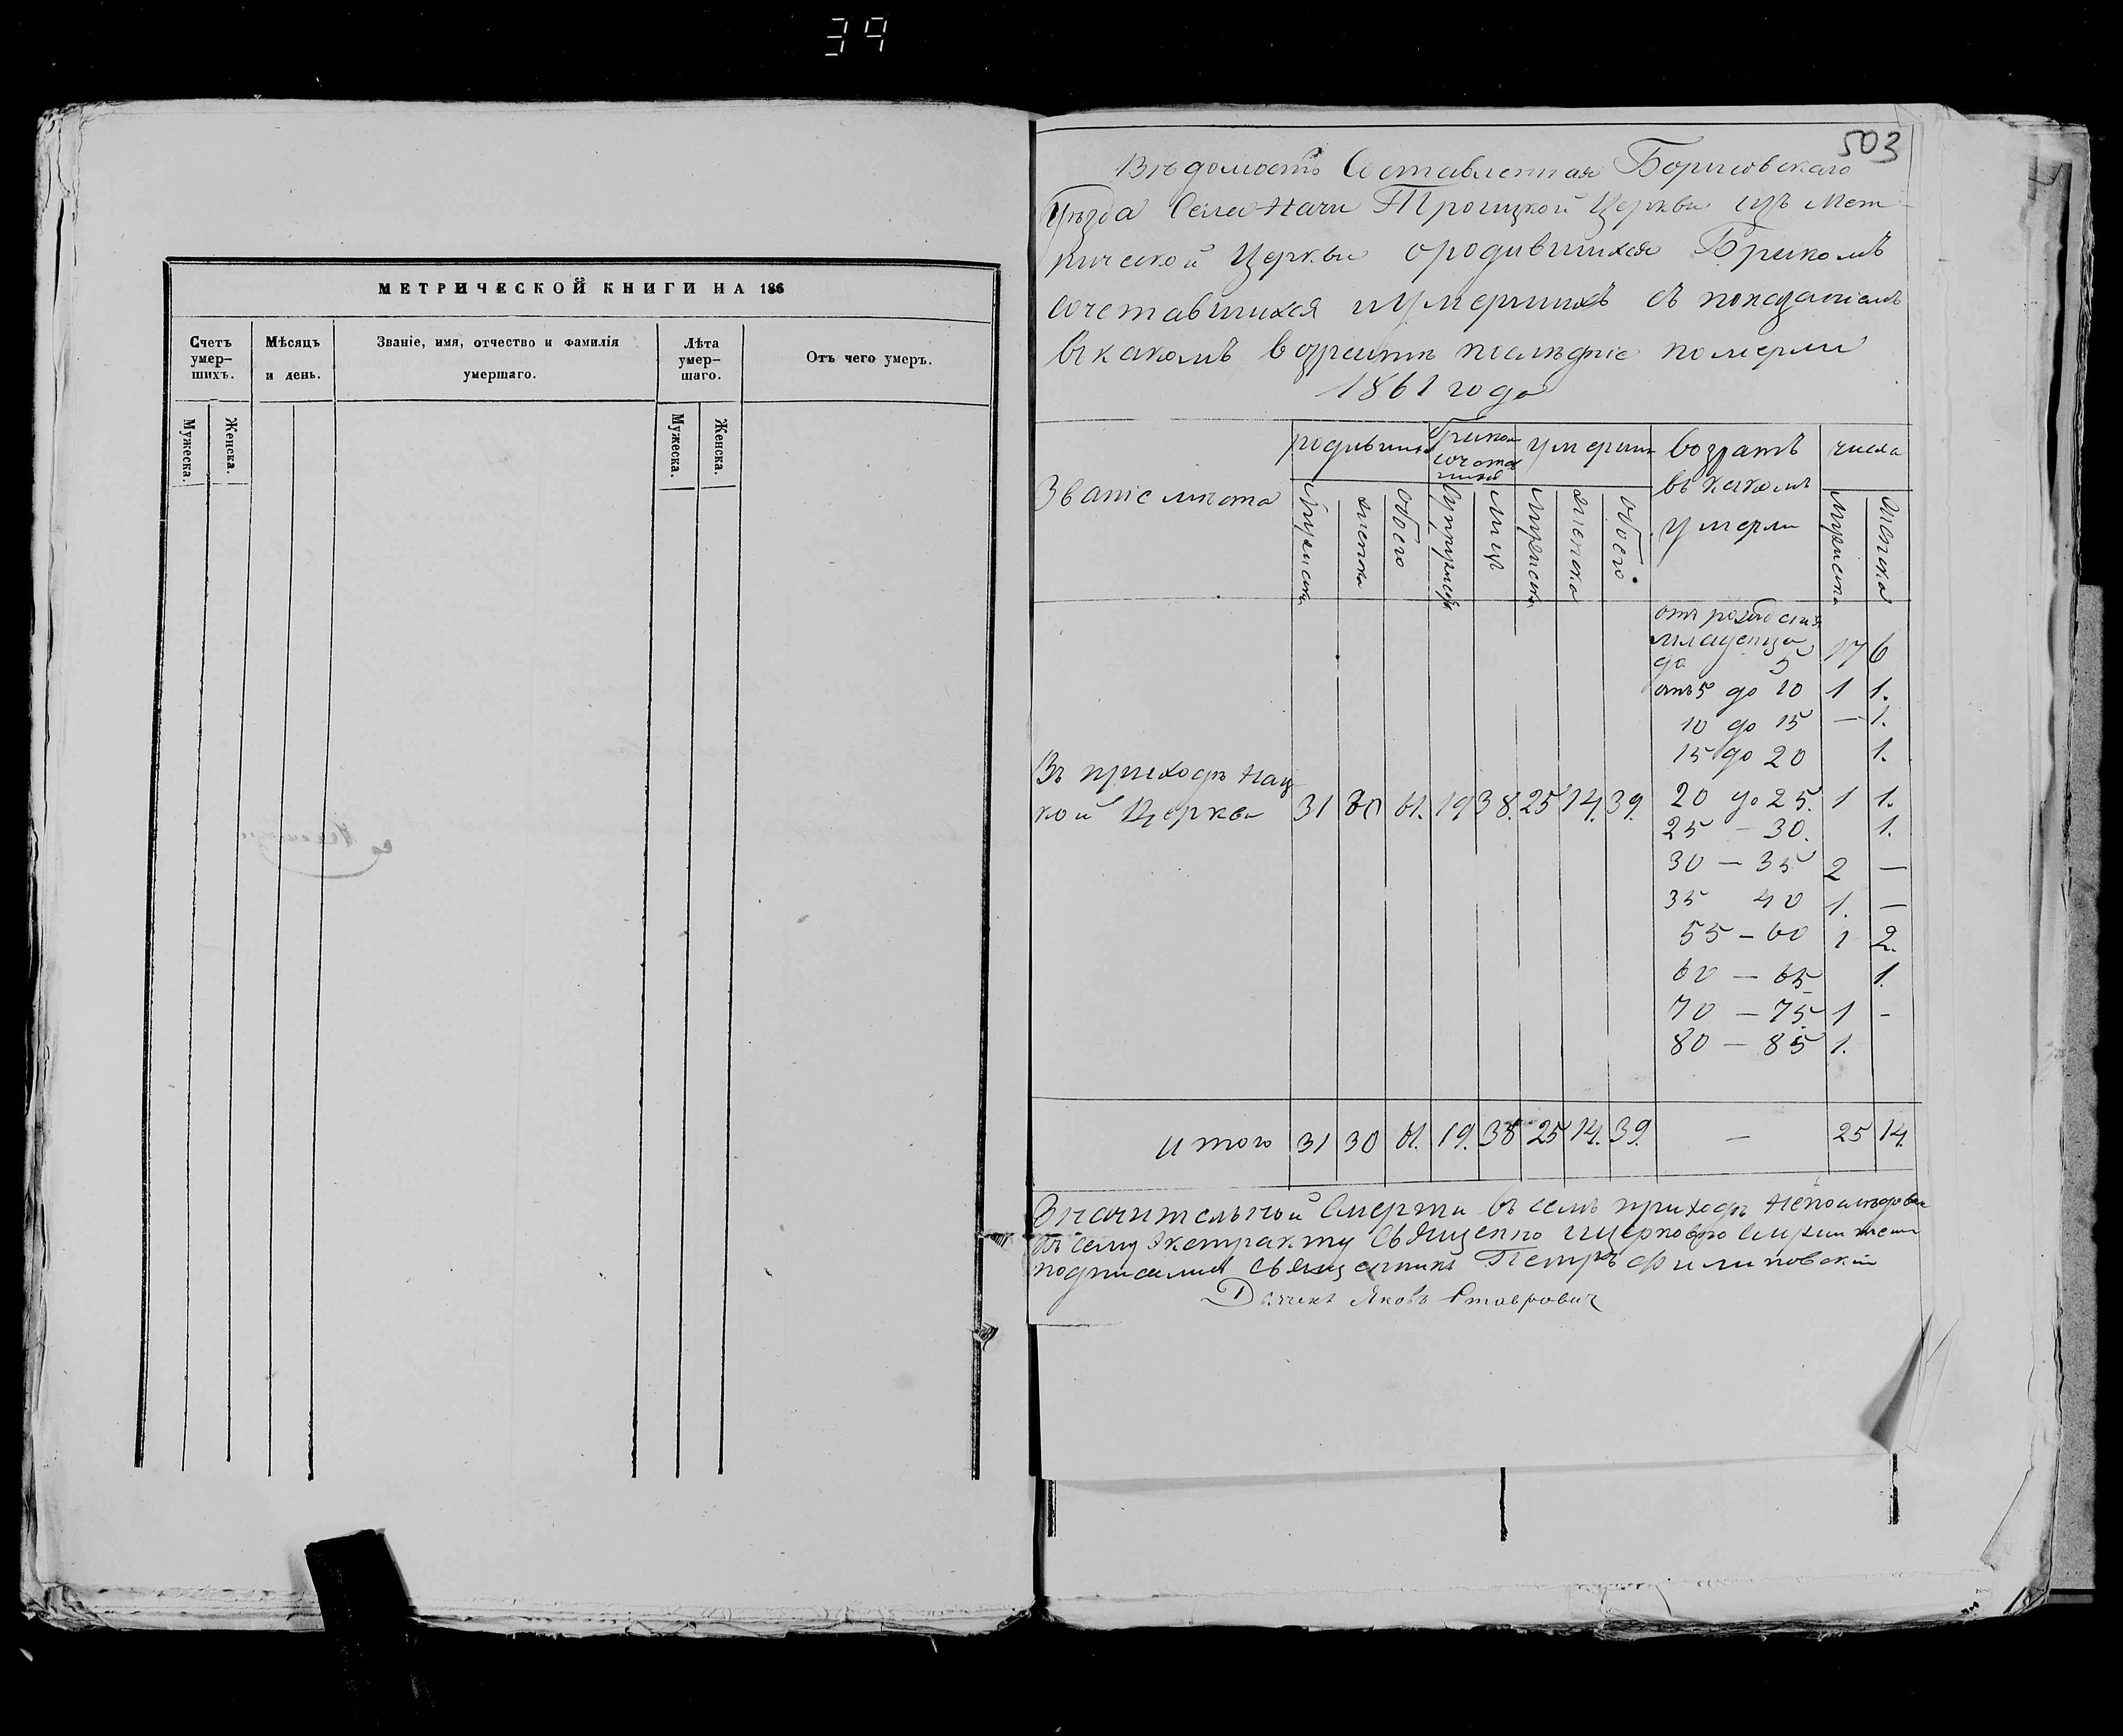 39
МЕТРИЧЕСКОЙ КНИГИ НА 186
Счетъ умер-шихъ.
Мѣсяцъ и день.
Званіе, имя, отчество и фамилія умершаго.
Лѣта умер-шаго.
Отъ чего умеръ.
Мужеска.
Женска.
Мужеска.
Женска.
503
Вѣдомость Составленная Борисовскаго
Уѣзда Села Начи Троицкой Церкви изъ Мет-
рической Церкви о родившихся Бракомъ
сочетавшихся и умершихъ съ показаніемъ
въ какомъ возрастѣ послѣдніе померли
1861 года
Званіе мѣста
родивши
Бракомъ
сочета
умерши
возратъ
въ какомъ
умерли
числа
Мужеска
женска
обоего
Супружес
Лицъ
Мужеска
женска
обоего
Мужеска
Женска
отъ рожденія
младенца
до 5 17 6
отъ 5 до 10 1 1.
10 до 15 — 1.
15 до 20 1.
Въ приходѣ Нац
кой Церкви 31 30 61. 19 38. 25 14. 39. 20 до 25. 1 1.
25 — 30. 1.
30 — 35 2 —
35 40 1. —
55 — 60 1 2.
60 — 65 1.
70 — 75 1 -
80 — 85 1.
Итого 31 30 61. 19. 38 25 14. 39. — 25 14.
Значительной Смерти въ семъ приходѣ непослѣдова
Къ сему Экстракту Священно и церковно служители
подписались Священникъ Петръ Филиповскій
Дьячекъ Яковъ Ставрович